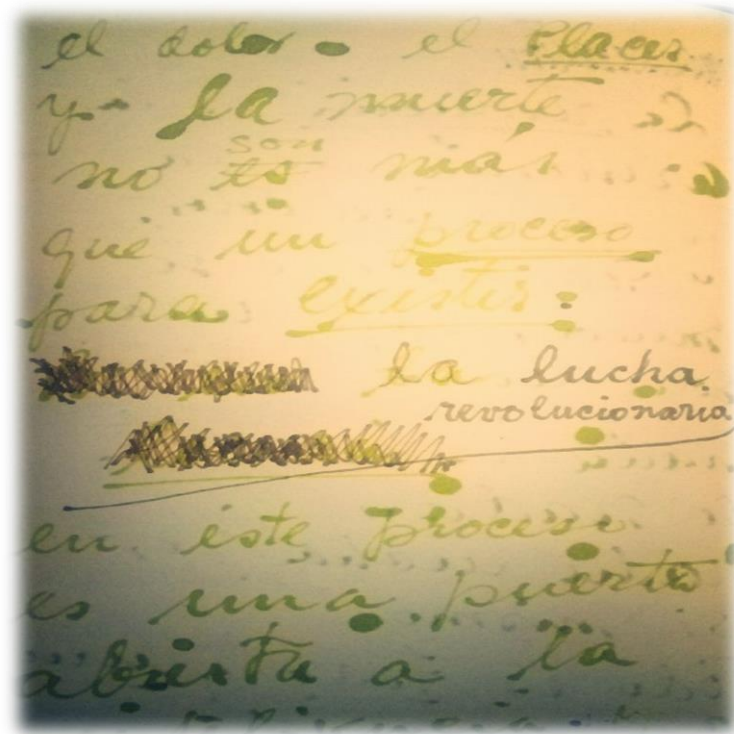 el dolor el Placer
y la muerte
son
no es más
que un proceso
para existir:
la lucha
revolucionaria
en este proceso
es una puerta
abierta a la
inteligencia